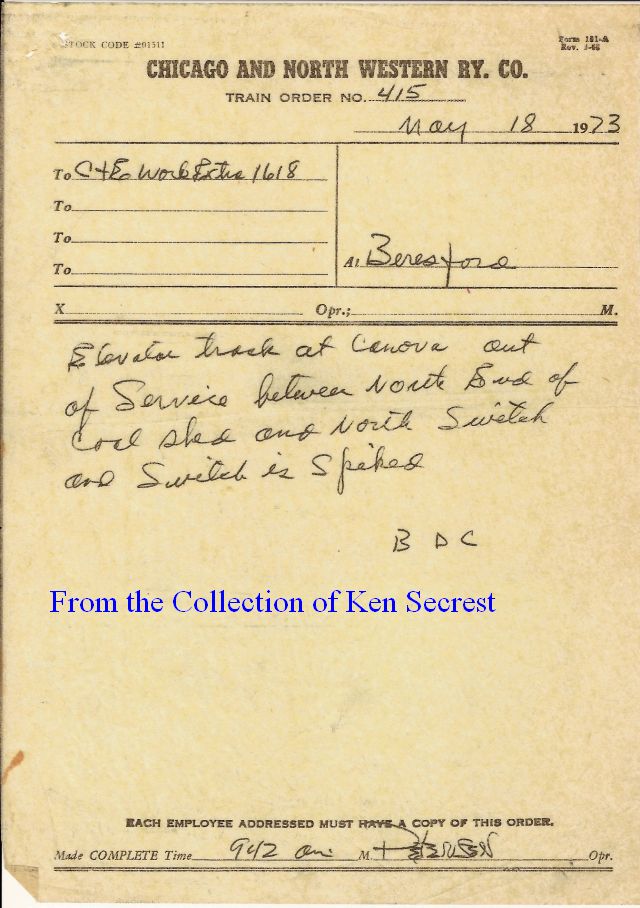 STOCK CODE #01511
Form 181-A
Rev. 1-68
CHICAGO AND NORTH WESTERN RY. CO.
TRAIN ORDER NO. 415
May 18 1973
To C+E Work Extra 1618
To
To
To
At Beresford
X Opr.; M.
Elevator track at Canova out
of Service between North End of
Coal shed and North Switch
and Switch is Spiked
B D C
From the Collection of Ken Secrest
EACH EMPLOYEE ADDRESSED MUST HAVE A COPY OF THIS ORDER.
Made COMPLETE Time 942 am M. Opr.